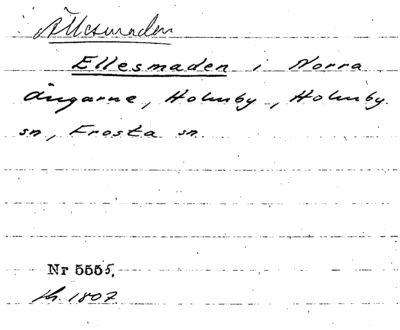 Ällesmaden
Ellesmaden i Norra
ängarne, Holmby, Holmby
sn, Frosta sn.
Nr 5555.
1807